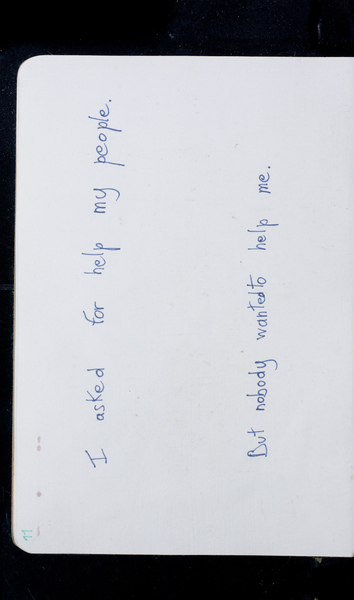 I asked for help my people.
But nobody wanted to help me.
11